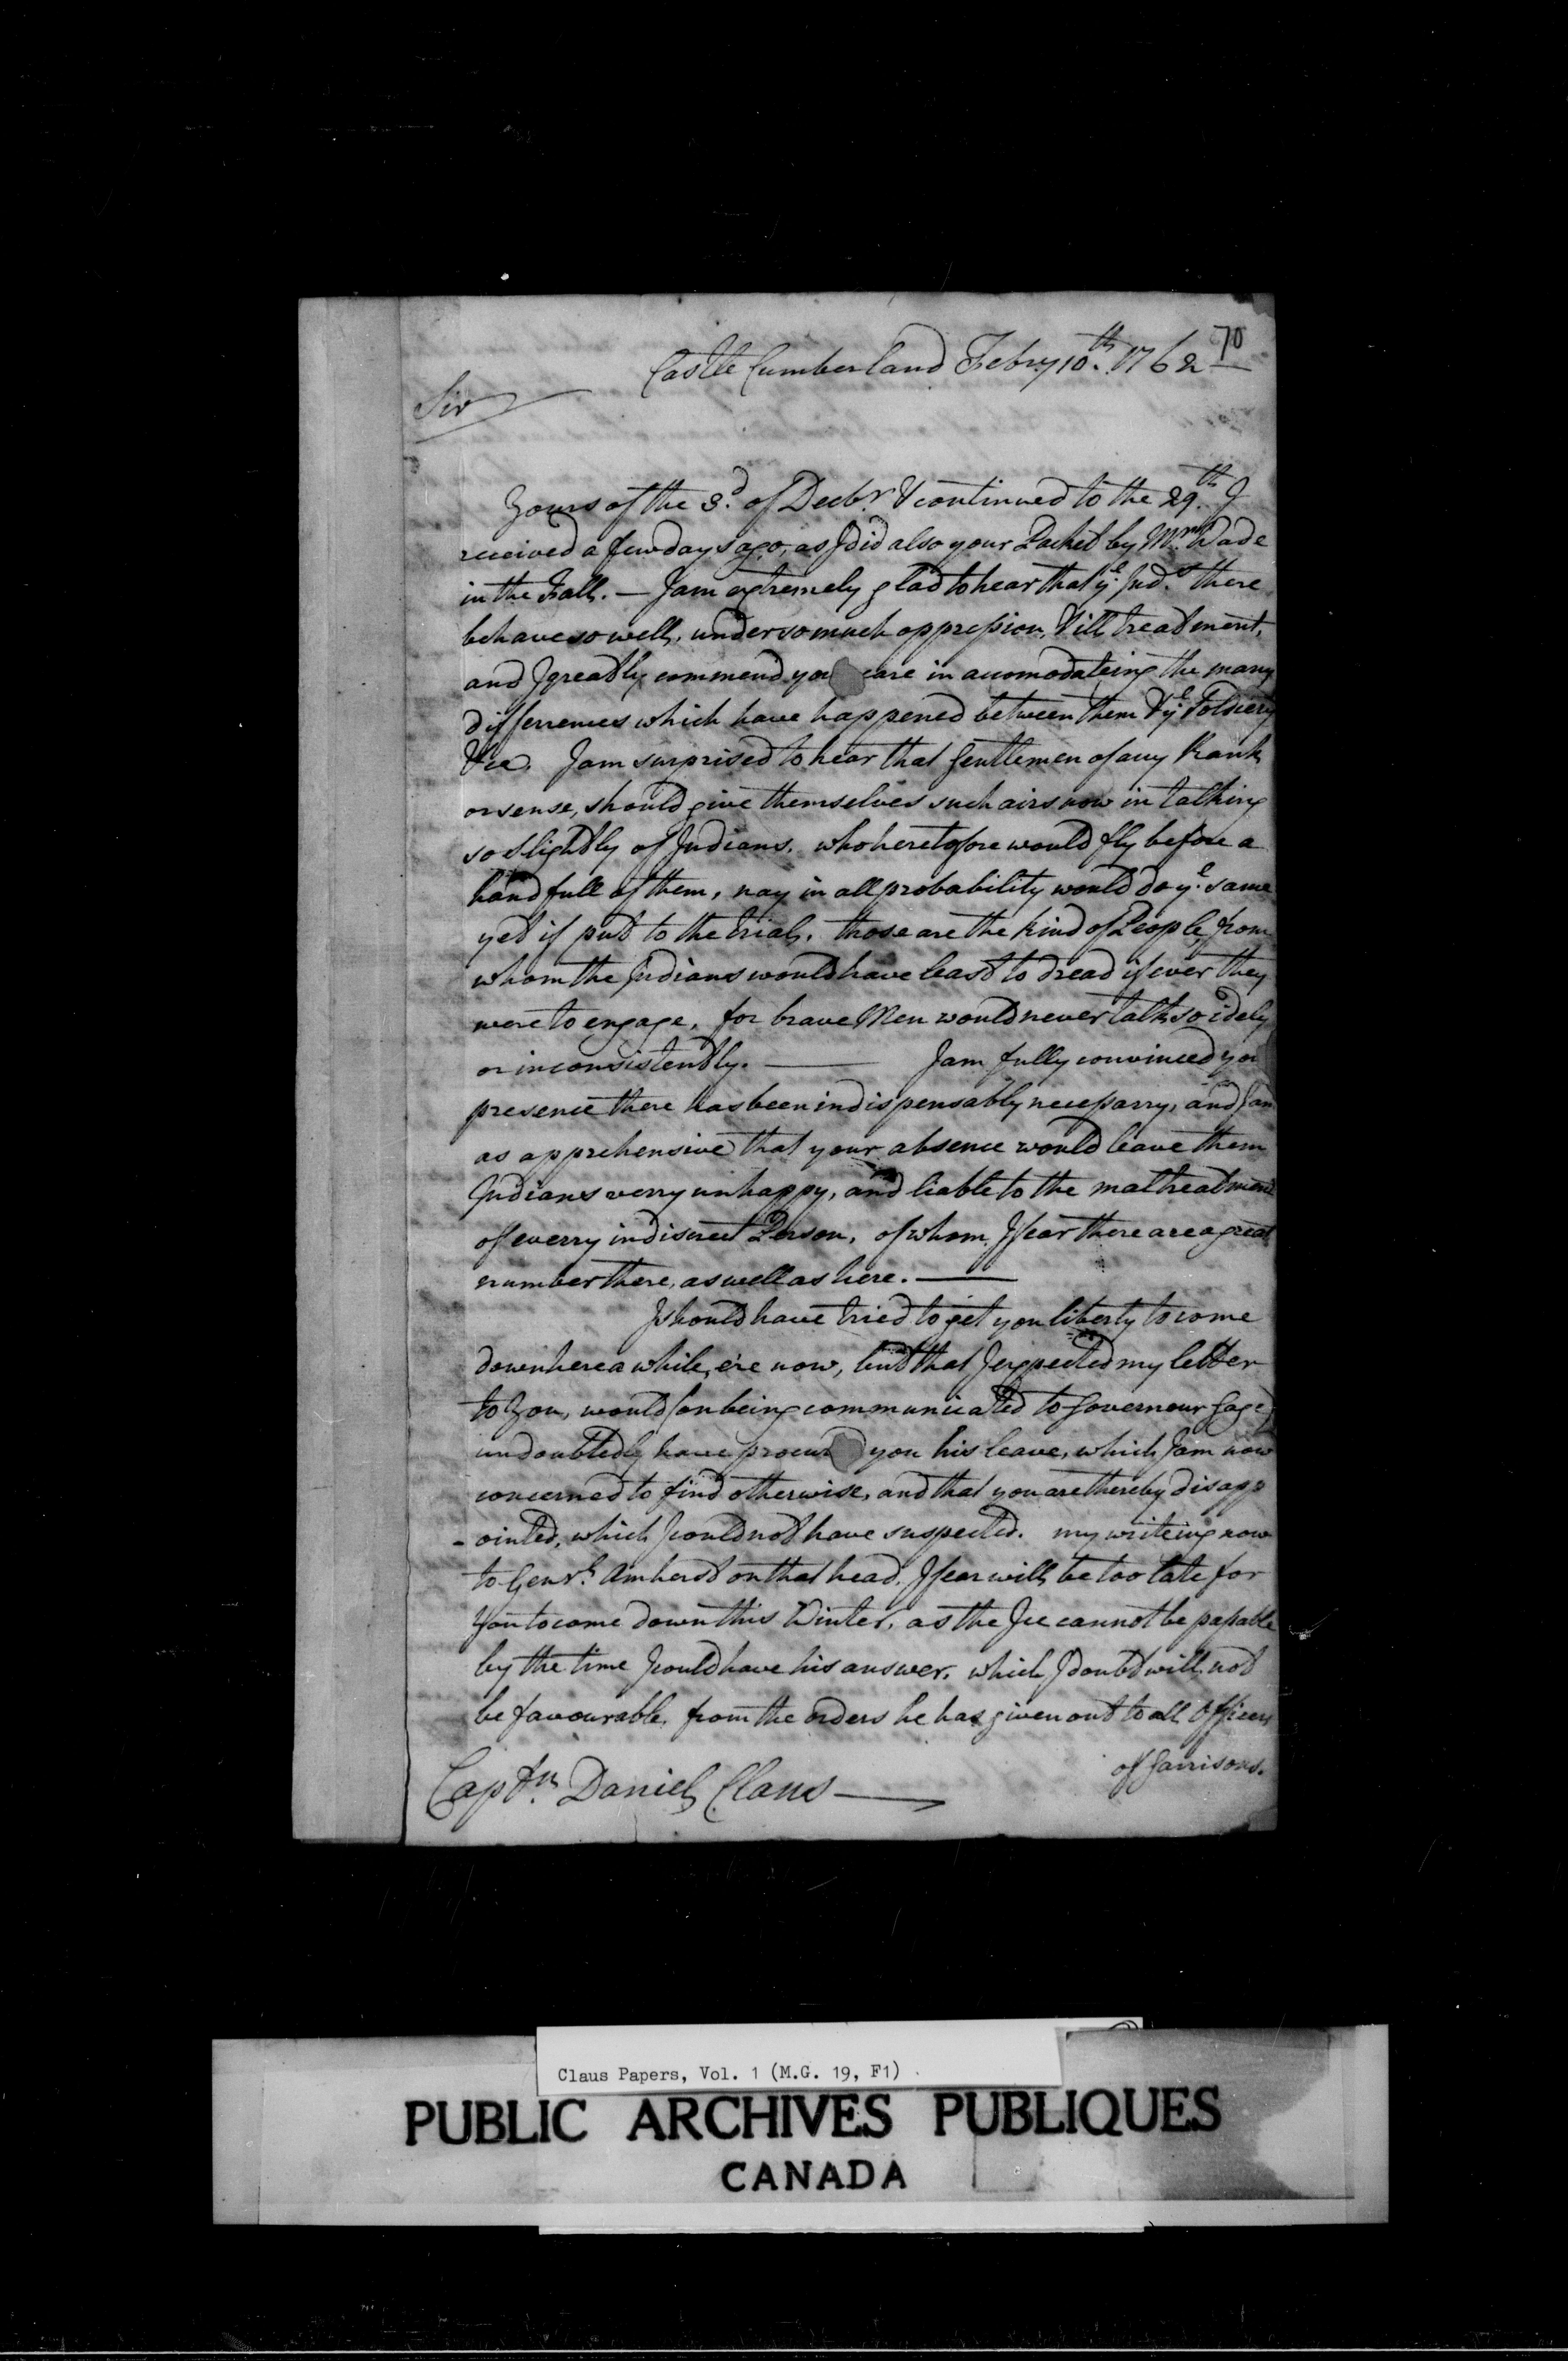 70
Castle Cumberland Febry 10th. 1762
Sir
Yours of the 3d. of Decbr. & continued to the 29th. I
received a few days ago, as I did also your Packet by Mr. Wade
in the Fall. — I am extremely glad to hear that ye. Inds. there
behave so well, under so much oppression, & ill treatment,
and I greatly commend you care in accomodateing the many
differrences which have happened between them & ye. Soldiery
&ca. I am surprised to hear that Gentlemen of any Rank
or sense, should give themselves such airs now in talking
so slightly of Indians, who heretofore would fly before a
handfull of them, nay in all probability would do ye. same
yet if put to the trial, those are the kind of People, from
whom the Indians would have least to dread if ever they
were to engage, for brave Men would never talk so idely
or inconsistently. — I am fully convinced you
presence there has been indispensably necessarry, and I am
as apprehensive that your absence would leave them
Indians verry unhappy, and liable to the maltreatment
of everry indiscreet Person, of whom I fear there are a great
number there, as well as here. —
I should have tried to get you liberty to come
down here a while, e're now, but that I expected my letter
to You, would (on being communicated to Governour Gage)
undoubtedly have procur you his leave, which I am now
concerned to find otherwise, and that you are thereby disapp
- ointed, which I could not have suspected. my writeing now
to Genrl. Amherst on that head, I fear will be too late for
You to come down this Winter, as the Ice cannot be passable
by the time I could have his answer, which I doubt will not
be favourable, from the orders he has given out to all Officers
of Garrisons.
Captn. Daniel Claus —
Claus Papers, Vol. 1 (M.G. 19, F1)
PUBLIC ARCHIVES PUBLIQUES
CANADA